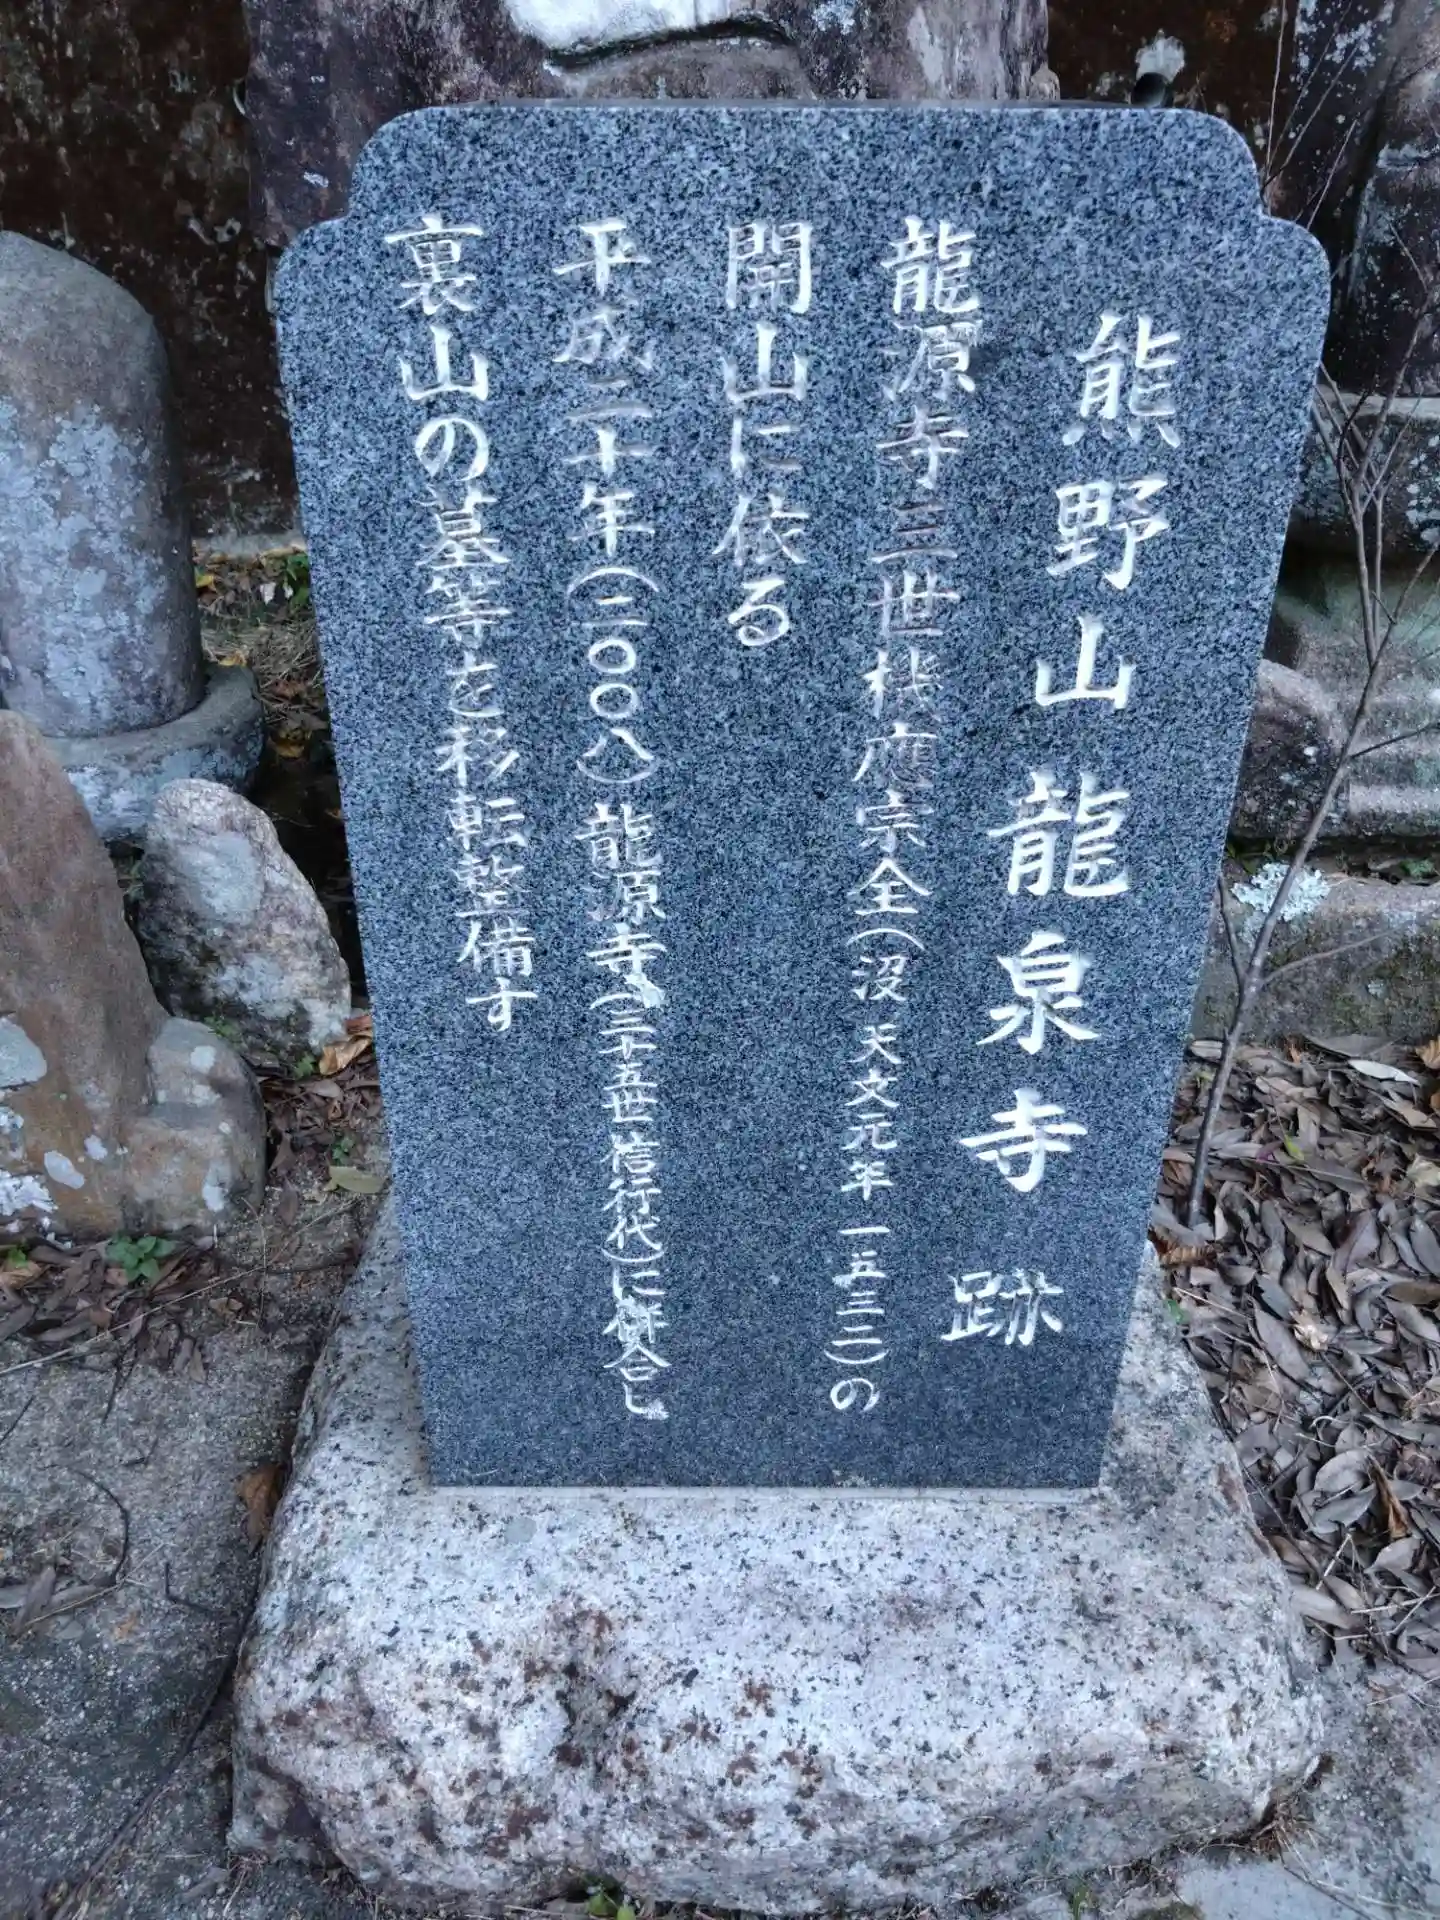 熊野山龍泉寺跡
龍源寺三世機應宗全(没 天文元年 一五三二)の
開山に依る
平成二十年(二〇〇八)龍源寺(三十五世信行代)に併合し
裏山の墓等を移転整備す